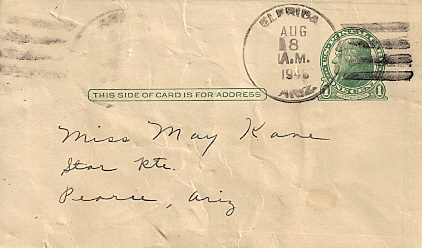 ELFRIDA
AUG
8
A.M.
ARIZ.
1
THIS SIDE OF CARD IS FOR ADDRESS
Miss May Kane
Star Rte.
Pearce, Ariz